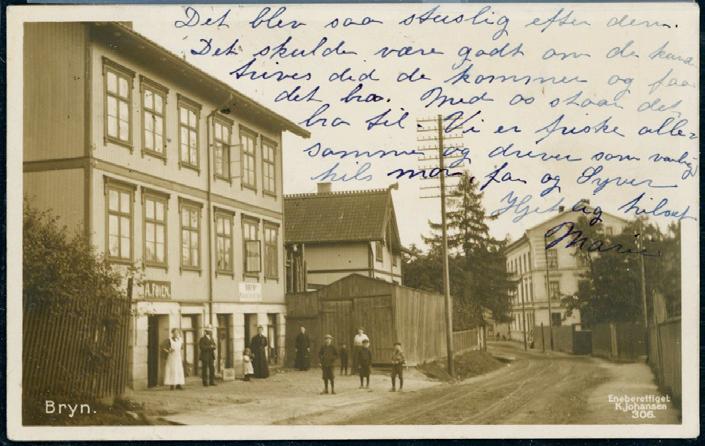 Det blev saa stuslig efter dem.
Det skulde være godt om de kand
trives did de kommer og faa
det bra. Med os staar det
bra til. Vi er friske alle-
sammen og driver som vanlig
hils mor far og Syver
Hjertelig hilset
Marie
A. FOIEN.
Bryn.
Eneberettiget
K. Johansen
306.